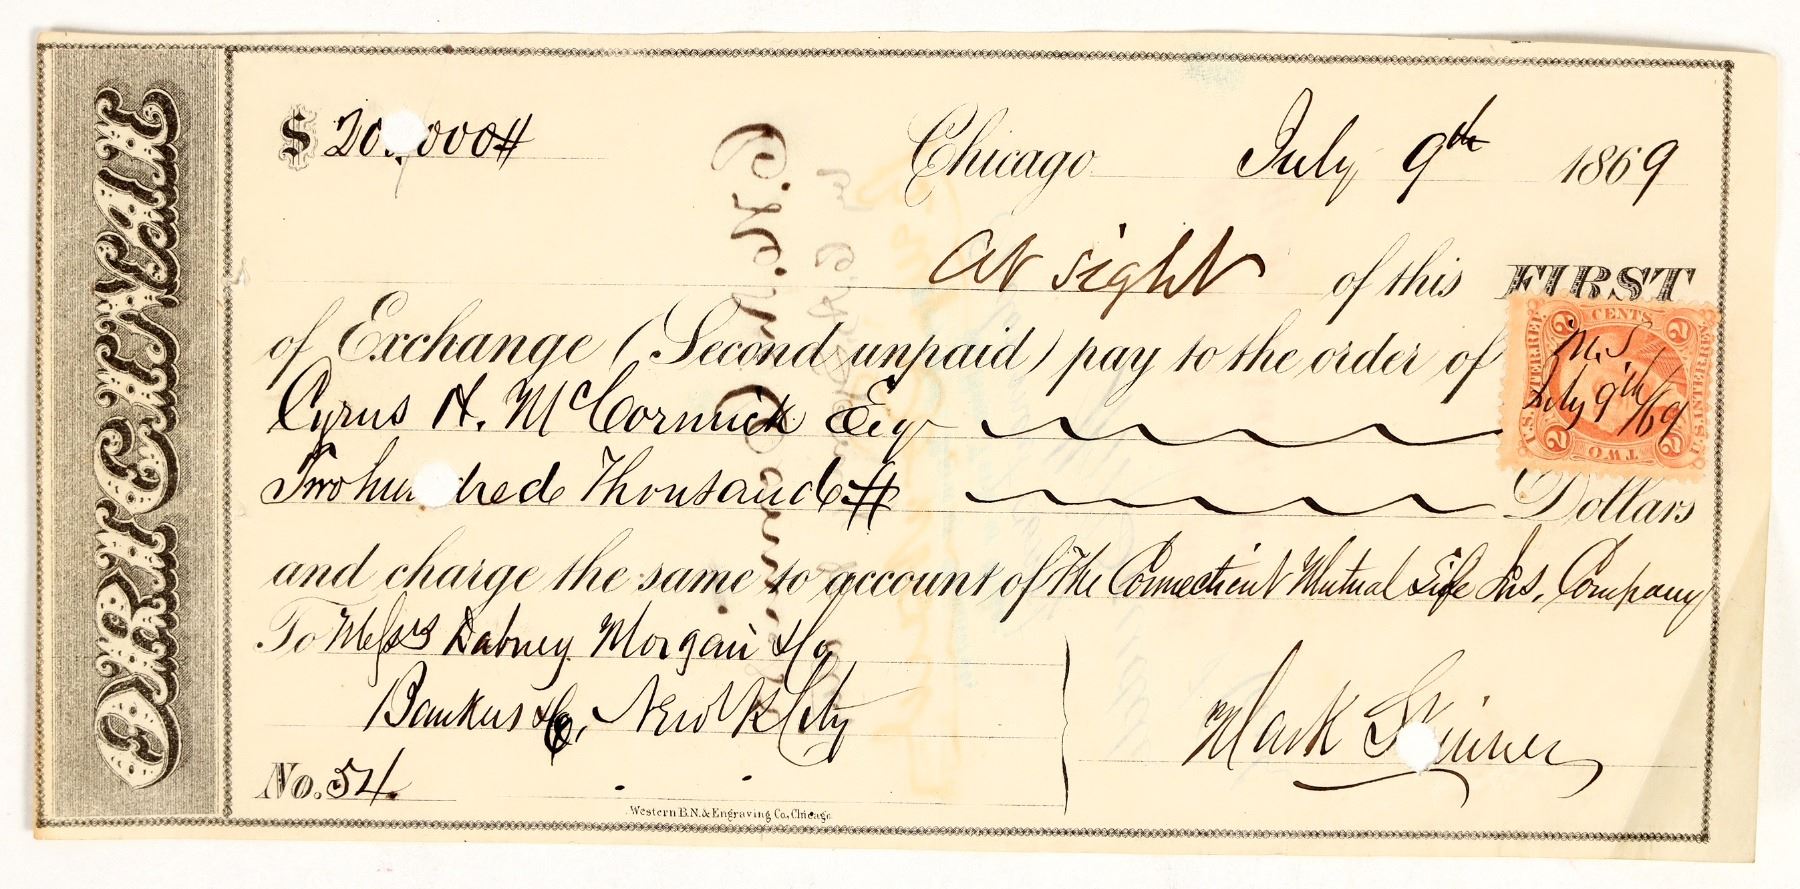 ORIGINAL
$ 200,000#
Chicago July 9th 1869
At sight of this FIRST
of Exchange (Second unpaid) pay to the order of
Cyrus H. McCormick Esq
Two hundred Thousand # Dollars
and charge the same to account of The Connecticut Mutual Life Ins. Company
To Messrs Dabney Morgan & Co
Bankers &c, New York City
Mark Skinner
No. 54.
Western B.N. & Engraving Co, Chicago
U.S. INTER. REV.
2 CENTS. 2
M.S.
July 9th/69
2 TWO 2
U.S. INTER. REV.